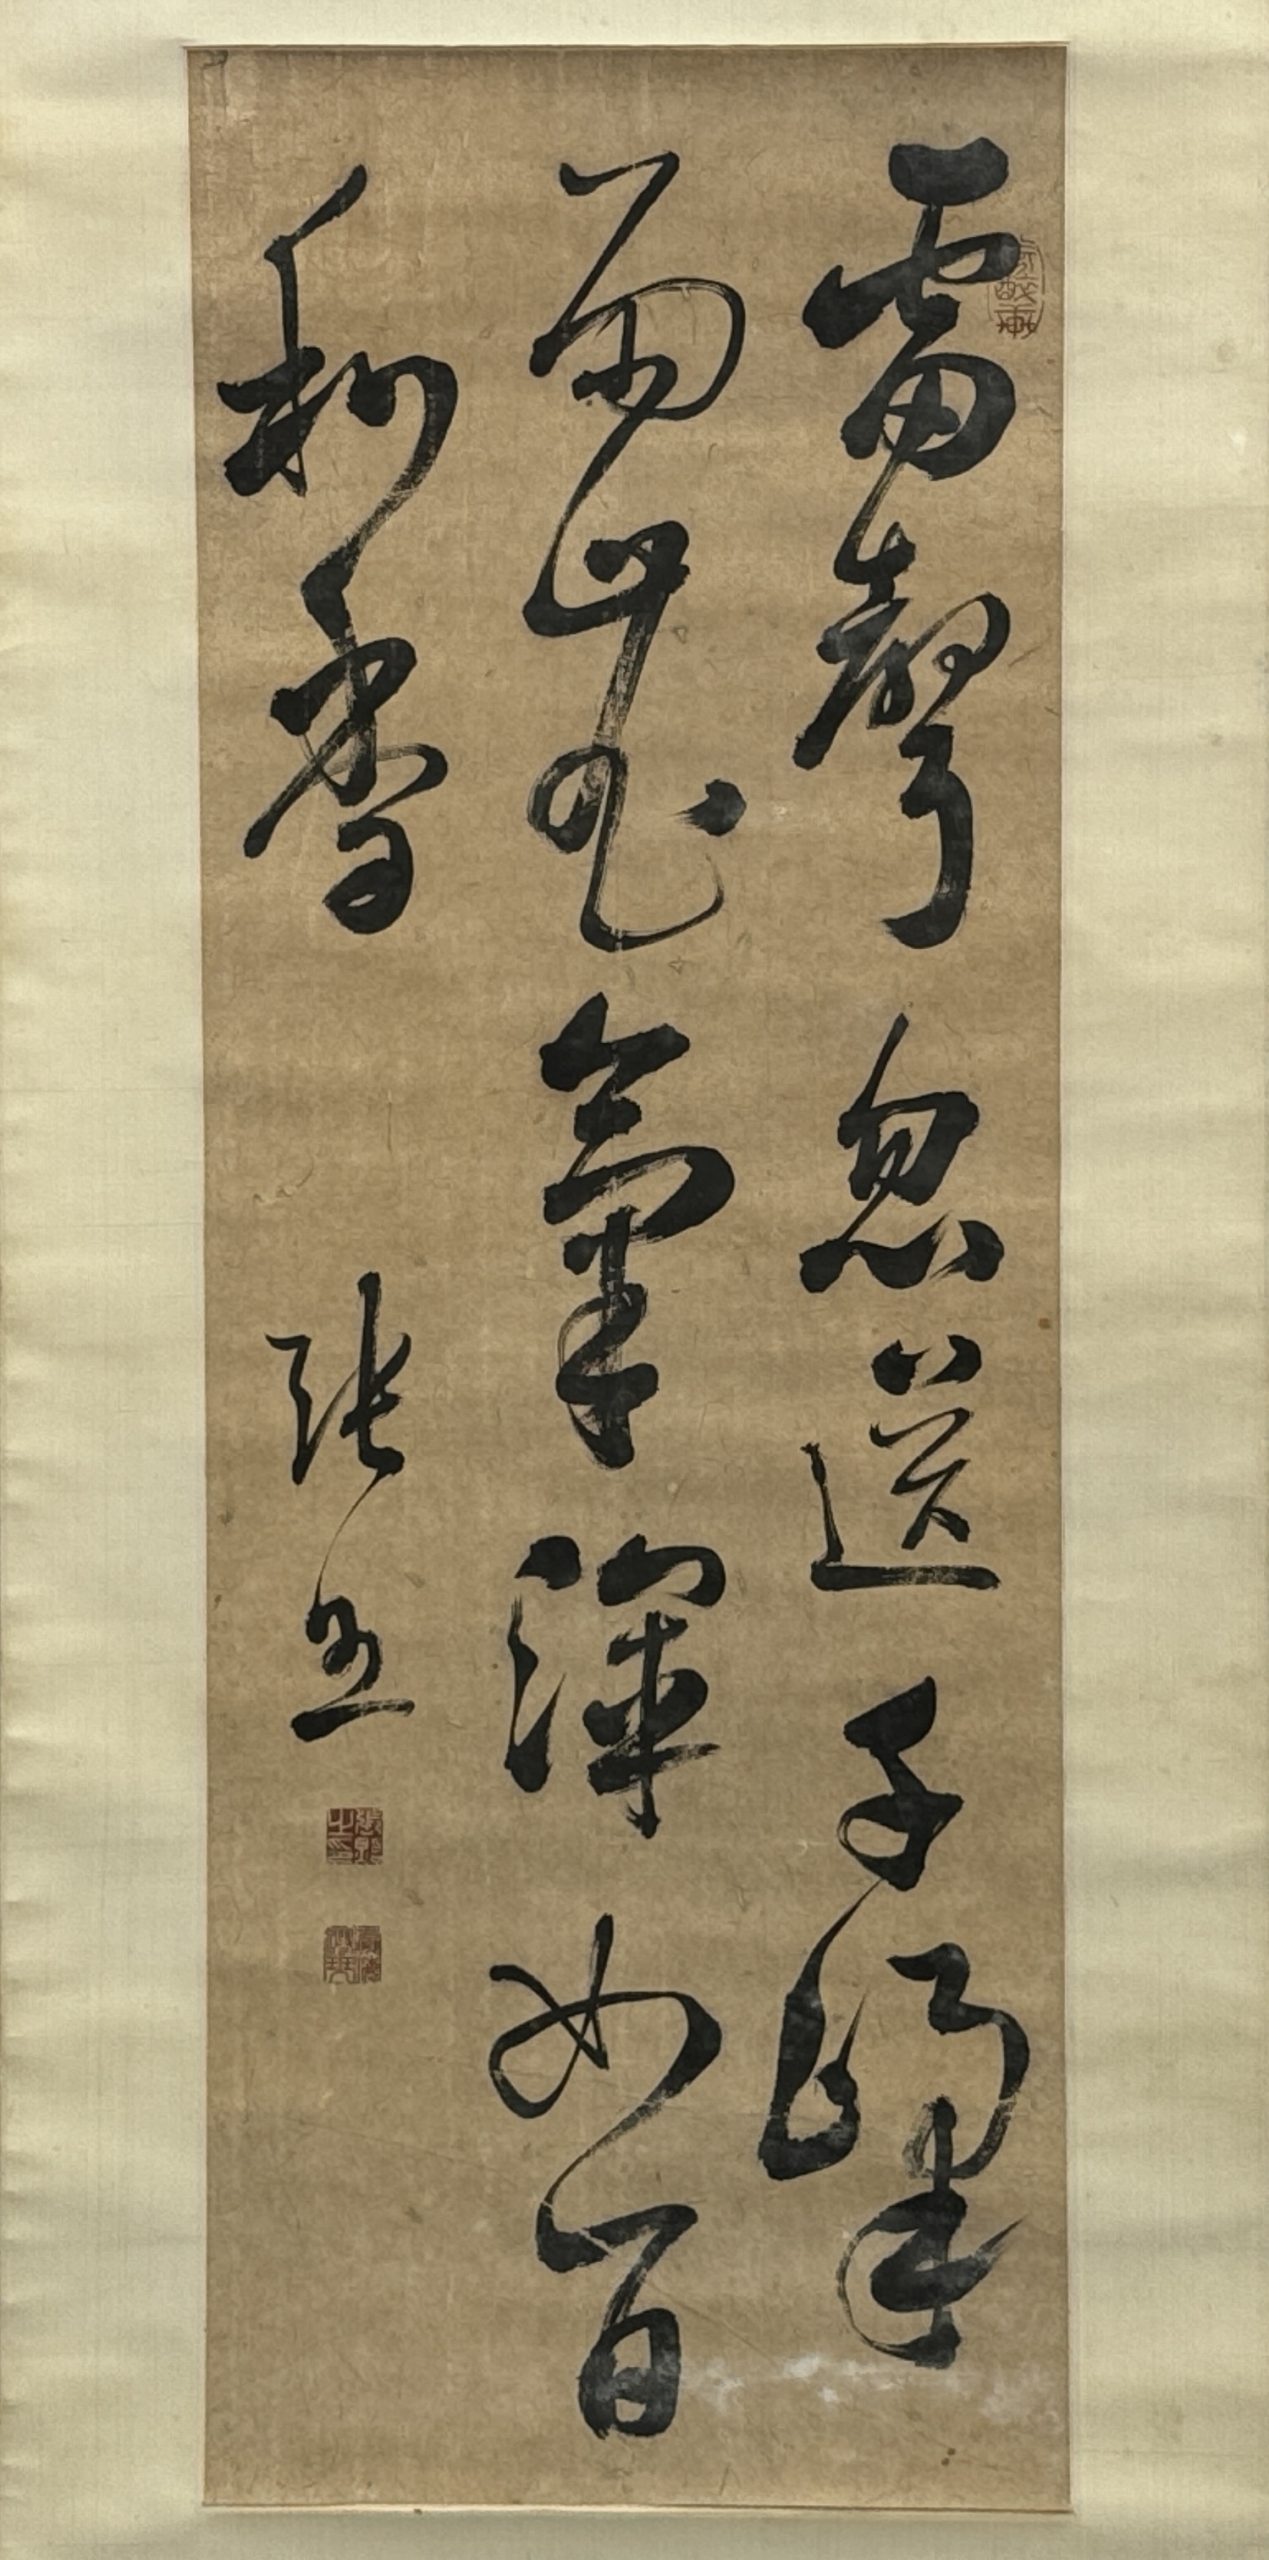 雷聲忽送千峰
雨花氣渾如百
和香
張